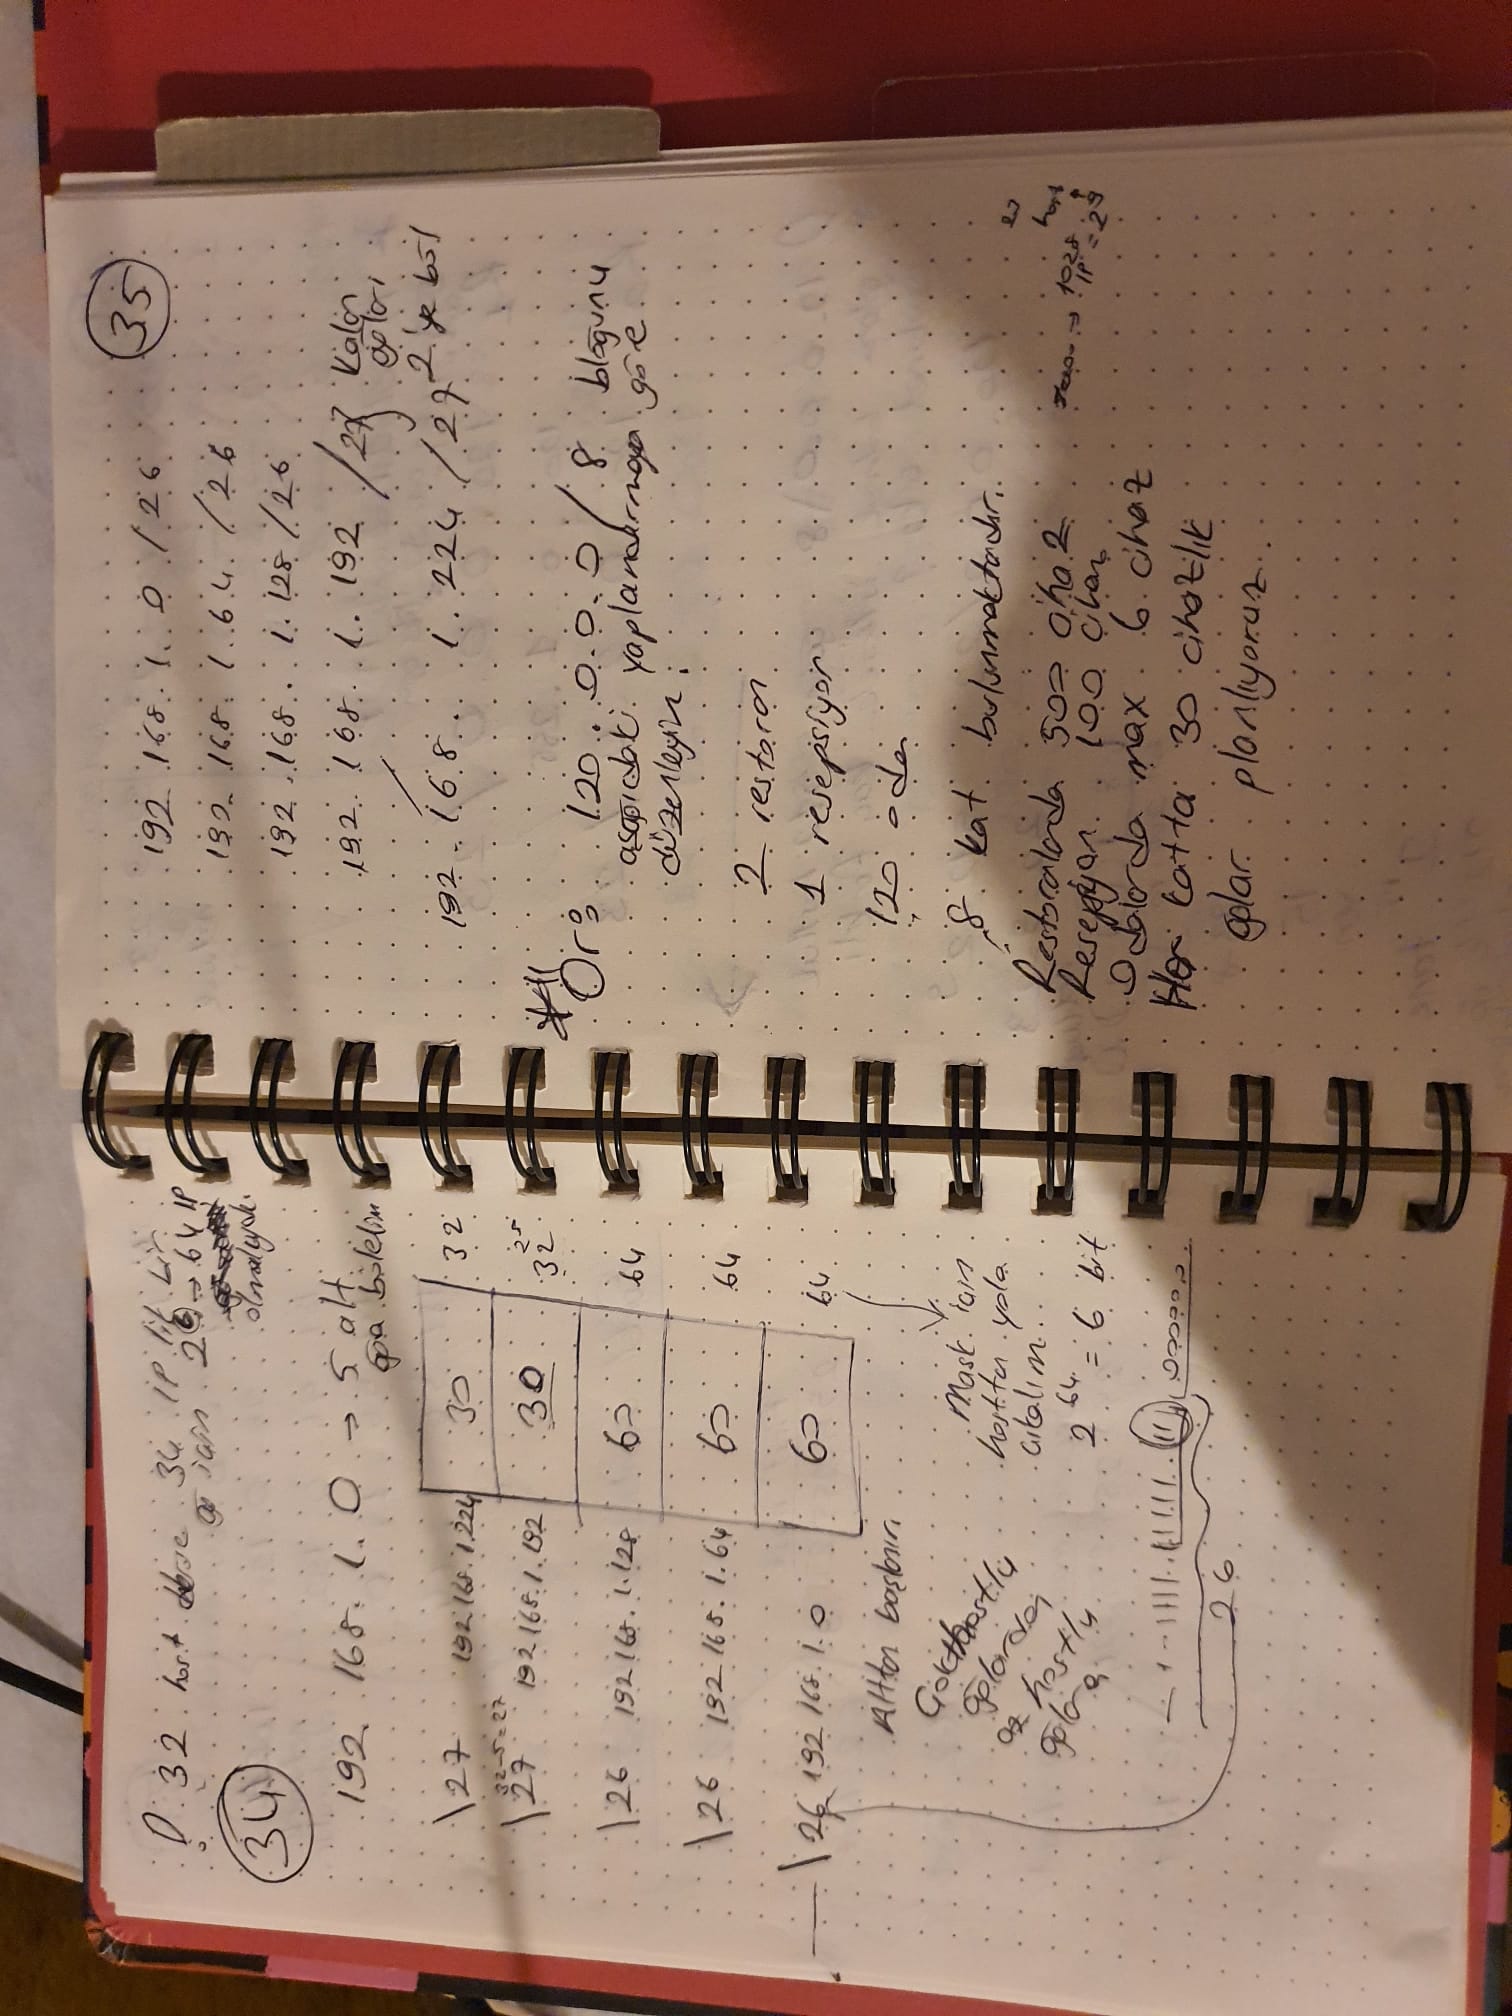 ! 32 host derse 34 IP lik bir
ağ için 2⁶ → 64 IP
olmalıydı.
34
192.168.1.0 → 5 alt
ağa bölelim
\27 192.168.1.224 30 32
32-5=27
\27 192.168.1.192 30 32 2⁵
\26 192.168.1.128 60 64
\26 192.168.1.64 60 64
\26 192.168.1.0 60 64
Alttan başlanır.
Çok hostlu
ağlardan
az hostlu
ağlara
Mask için
hosttan yola
çıkalım.
2⁶⁴ = 6 bit
26
35
192.168.1.0 /26
192.168.1.64 /26
192.168.1.128 /26
192.168.1.192 /27 } Kalan
ağları
2'ye böl
192.168.1.224 /27
Ör: 120.0.0.0 / 8 bloğunu
aşağıdaki yapılandırmaya göre
düzenleyin:
2 restoran
1 resepsiyon
120 oda
8 kat bulunmaktadır.
Restoranlarda 500 cihaz
Resepsiyon 100 cihaz
Odalarda max 6 cihaz
Her katta 30 cihazlık
ağlar planlıyoruz.
host
→ 1028
IP = 2⁹